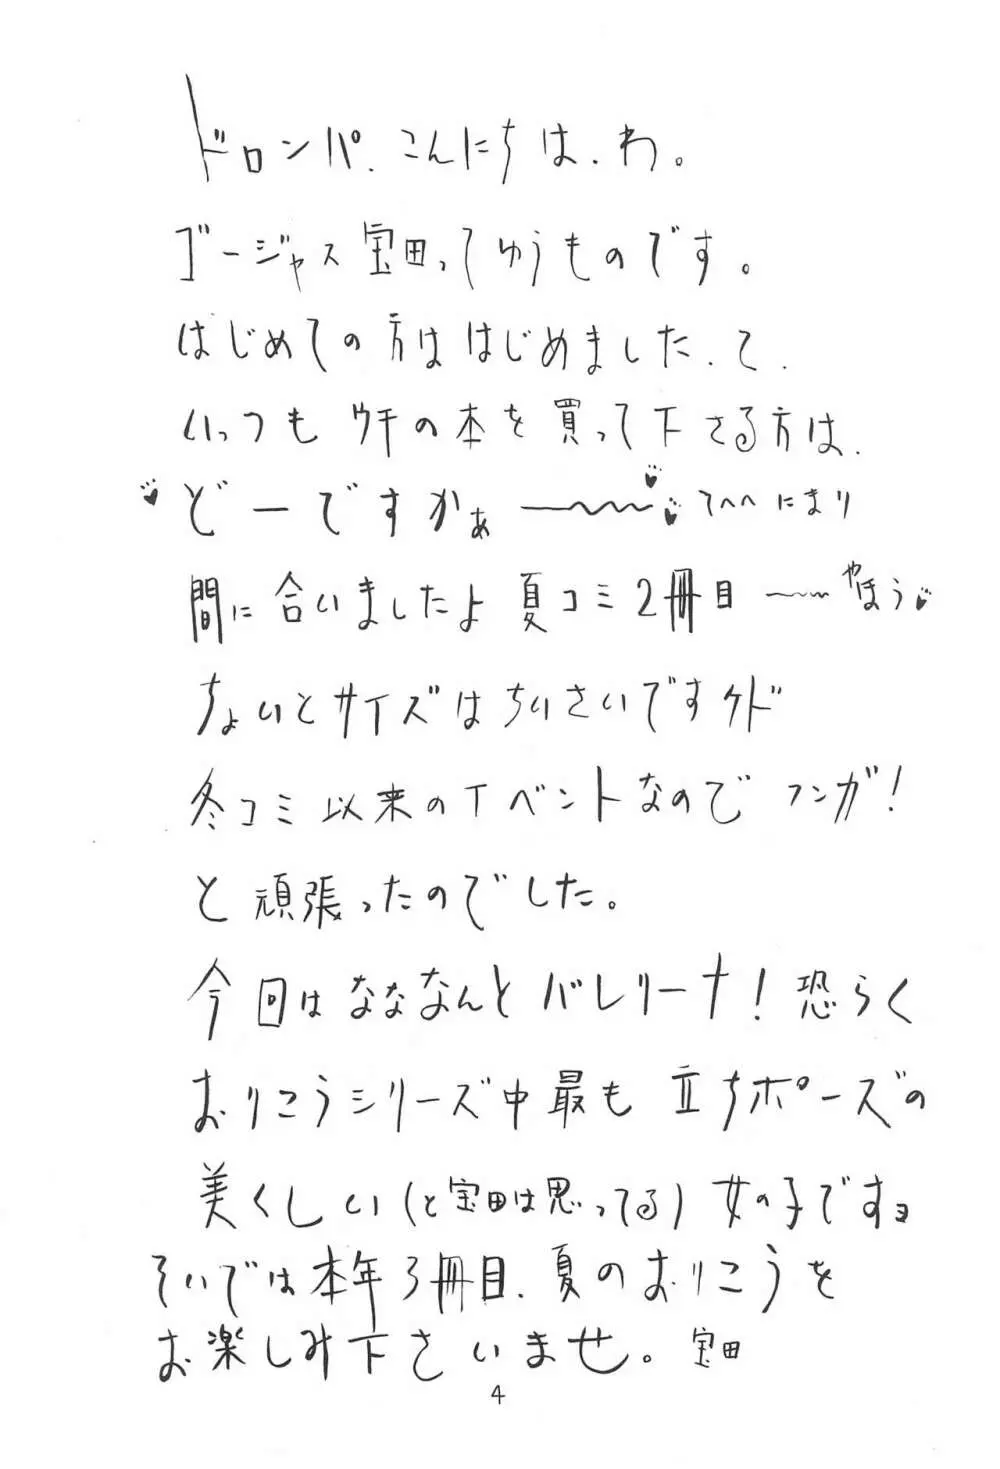 ドロンパ.こんにちは.わ。
ゴージャス宝田ってゆうものです。
はじめての方ははじめました.て.
いっつもウチの本を買って下さる方は.
どーですかぁ――〜〜〜てへへにまり
間に合いましたよ夏コミ2冊目―〜〜やほう
ちょいとサイズはちいさいですケド
冬コミ以来のイベントなのでフンガ!
と頑張ったのでした。
今回はなななんとバレリーナ!恐らく
おりこうシリーズ中最も立ちポーズの
美くしい(と宝田は思ってる)女の子ですョ
そいでは本年3冊目.夏のおりこうを
お楽しみ下さいませ。宝田
4